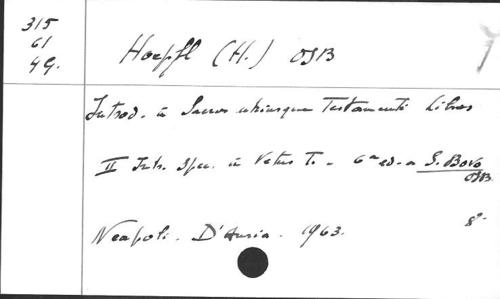 315
61
4G.
Hoepfl (H.) OSB
Introd. in Sacros utriusque Testamenti Libros
II Intr. Spec. in Vetus T. - 6ª ed. a S. Bovo
OSB.
Neapoli. D'Auria. 1963. 8°-